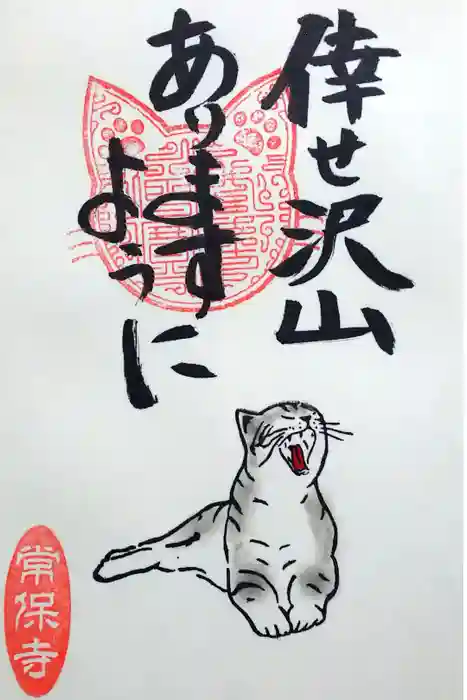 倖せ沢山
あります
ように
常保寺